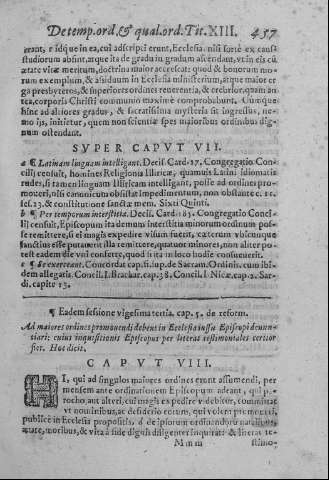 De temp. ord. & qual. ord. Tit. XIII. 457
erunt, e idque in ea, cui adscripti erunt, Ecclesia. nisi fortè ex causa
studiorum absint, atque ita de gradu in gradum ascendant, vt in eis cū
ætate vitæ meritum, doctrina maior accrescat: quod & bonorum mo-
rum exemplum, & assiduum in Ecclesia ministerium, atque maior er
ga presbyteros, & superiores ordines reuerentia, & crebrior, quam an
tea, corporis Christi communio maximè comprobabunt. Cumque
hinc ad altiores gradus, & sacratissima mysteria sit ingressus, ne-
mo ijs, initietur, quem non scientiæ spes maioribus ordinibus dig-
num ostendant.
SVPER CAPVT VII.
a ¶ Latinam linguam intelligant. Decis. Card. 27. Congregatio Con-
cilij censuit, homines Religionis Illiricæ, quamuis Latini idiomatis
rudes, si tamen linguam Illiricam intelligant, posse ad ordines pro-
moueri, nisi canonicum obsistat impedimentum, non obstante c. 11.
ses. 23. & constitutione sanctæ mem. Sixti Quinti.
b ¶ Per temporum interstitia. Decis. Card. 183. Congregatio Conci-
lij censuit, Episcopum ita demum interstitia minorum ordinum pos-
se remittere, si el magis expedire visum fuerit, cæterum vbicunque
sanctius esse putauerit illa remittere, quatuor minores, non aliter po-
test eadem die vni conferre, quod si ita in loco hodie consueuerit.
c ¶ Se exercerent. Concordat cap. si. iup. de Sacram. Ordinis. cum ibi-
dem allegatis. Concil. I. Brachar. cap. 38. Concil. I. Nicæ. cap. 2. Sar-
di. capite 13.
¶ Eadem sessione vigesima tertia. cap. 5. de reform.
Ad maiores ordines promouendi debent in Ecclesia iussu Episcopi denun-
tiari: cuius inquisitionis Episcopus per literas testimoniales certior
fiet. Hoc dicit.
CAPVT VIII.
HI, qui ad singulos maiores ordines erunt assumendi, per
mensem ante ordinationem Episcopum adeant, qui pa-
rocho, aut alteri, cui magis expedire videbitur, committat
vt nominibus, ac desiderio eorum, qui volent promoueri,
publicè in Ecclesia propositis, d de ipsorum ordinandorum natalibus,
ætate, moribus, & vita à fide dignis diligenter inquirat: & literas te-
Mmm stimo-